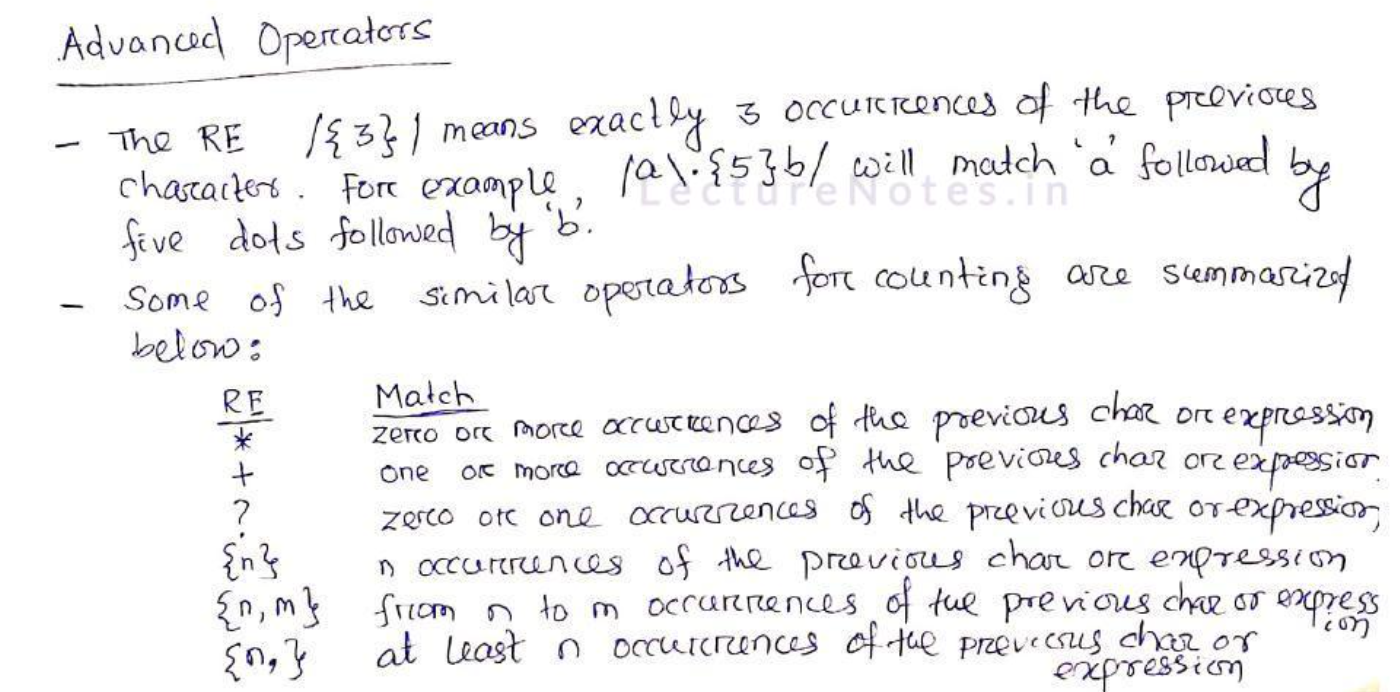 Advanced Operators
- The RE /{3}/ means exactly 3 occurrences of the previous
character. For example, /a\.{5}b/ will match 'a' followed by
LectureNotes.in
five dots followed by 'b'.
- Some of the similar operators for counting are summarized
below:
RE Match
* zero or more occurrences of the previous char or expression
+ one or more occurrences of the previous char or expression
? zero or one occurrences of the previous char or expression,
{n} n occurrences of the previous char or expression
{n,m} from n to m occurrences of the previous char or expression
{n,} at least n occurrences of the previous char or
expression